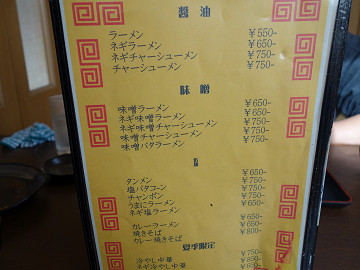 醤油
ラーメン ￥550-
ネギラーメン ￥650-
ネギチャーシューメン ￥750-
チャーシューメン ￥750-
味噌
味噌ラーメン ￥650-
ネギ味噌ラーメン ￥650-
ネギ味噌チャーシューメン ￥750-
味噌チャーシューメン ￥750-
味噌バタラーメン ￥750-
タンメン ￥650-
塩バタコーン ￥750-
チャンポン ￥750-
うまにラーメン ￥650-
ネギ塩ラーメン ￥650-
カレーラーメン ￥650-
焼きそば ￥800-
カレー焼きそば
夏季限定
冷やし中華 ￥750-